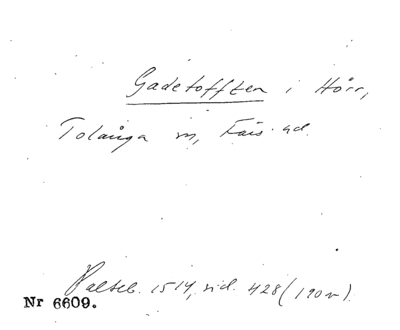 Gadetofften i Hörr,
Tolånga sn, Färs hd.
Palteb. 1514, sid. 428 (190 v).
Nr 6609.